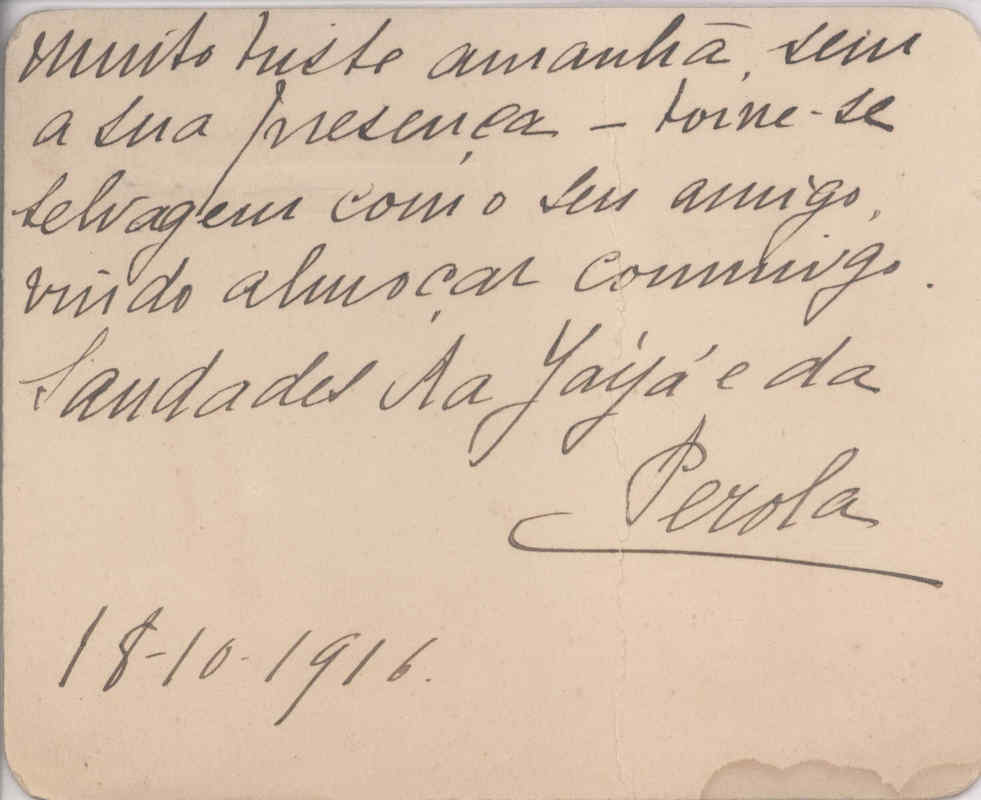 muito triste amanhã, sem
a sua presença – torne-se
selvagem como seu amigo,
vindo almoçar commigo.
Saudades da Yáyá e da
Perola
18-10-1916.